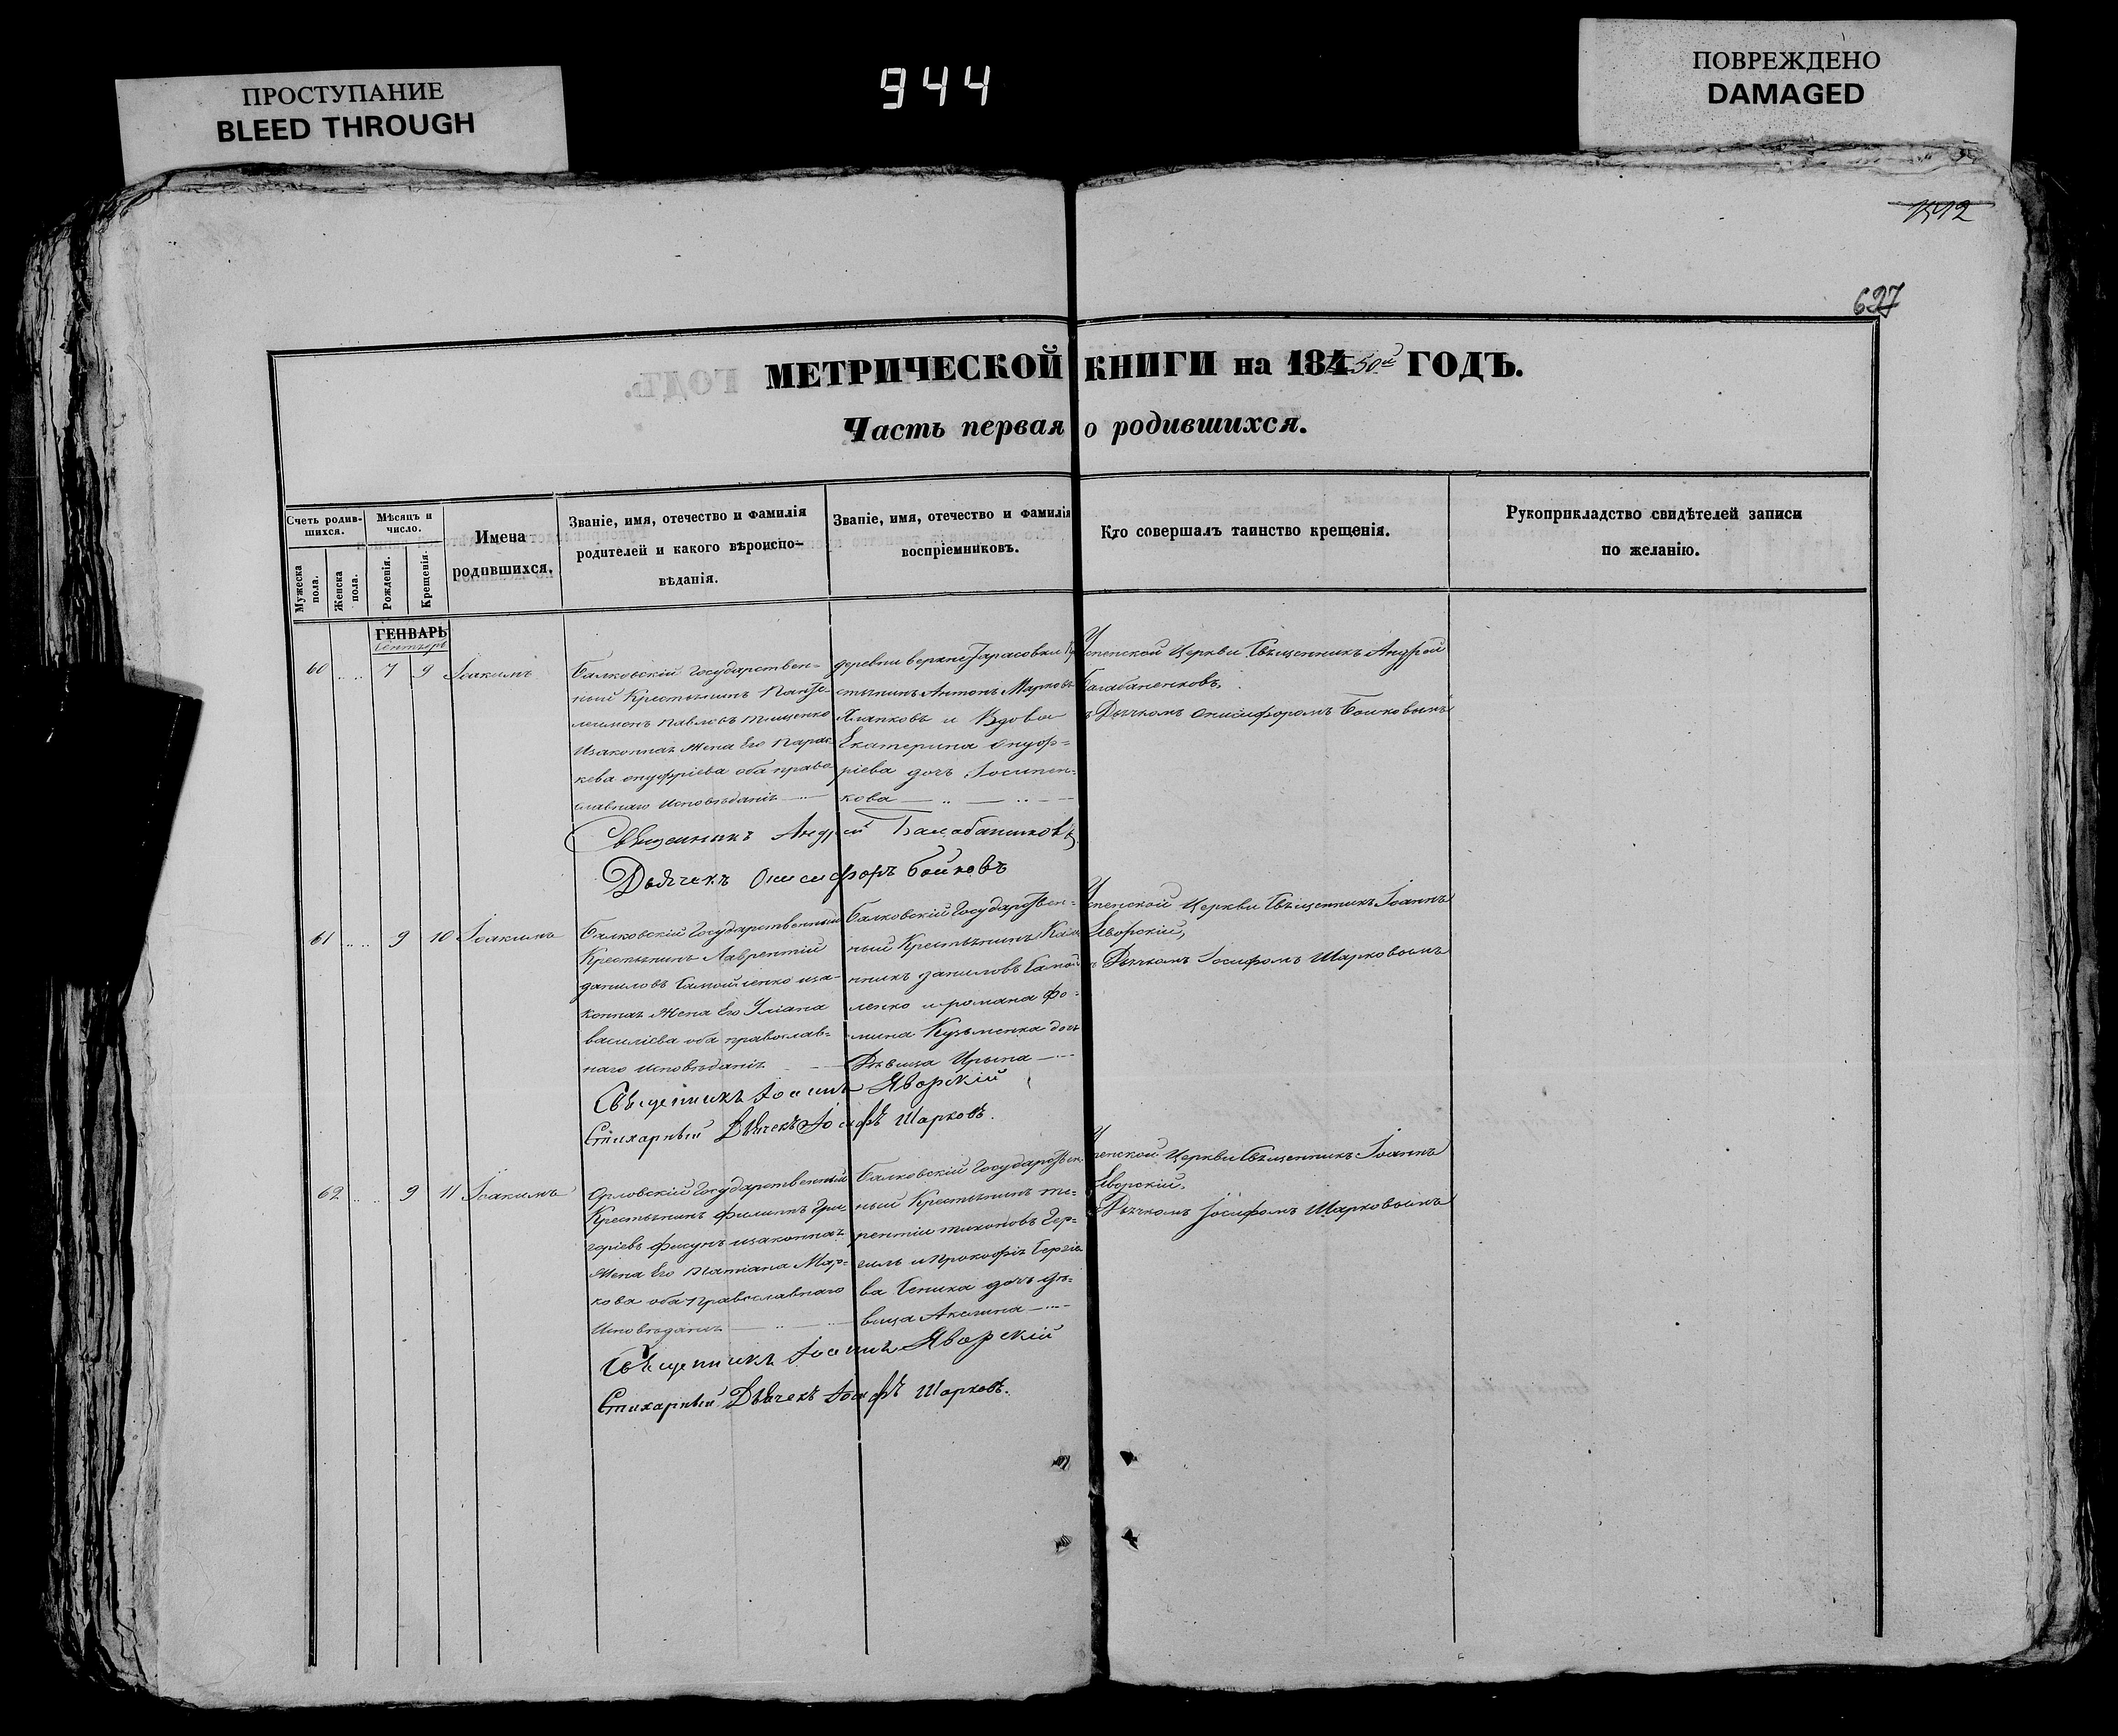 ПРОСТУПАНИЕ
BLEED THROUGH
944
ПОВРЕЖДЕНО
DAMAGED
1542
627
МЕТРИЧЕСКОЙ КНИГИ на 184 50й ГОДЪ.
Часть первая о родившихся.
Счетъ родив-
шихся.
Мужеска
пола.
Женска
пола.
Мѣсяцъ и
число.
Рожденія.
Крещенія.
Имена
родившихся.
Званіе, имя, отечество и фамилія
родителей и какого вѣроиспо-
вѣданія.
Званіе, имя, отечество и фамилія
воспріемниковъ.
Кто совершалъ таинство крещенія.
Рукоприкладство свидѣтелей записи
по желанію.
ГЕНВАРЬ
Сентябрь
60
7
9
Іоакимъ
Балковскій Государствен-
ный Крестьянинъ Панте-
леимонъ Павловъ Тищенко
изаконная Жена Его Парас-
кева онуфріева оба право
славнаго исповѣданія
деревни верхне Тарасовки
Антонъ Марковъ
и Вдова
Екатерина онуф-
ріева дочь Іосипен-
кова
Успенской Церкви Священникъ Андрей
Балабаненковъ,
Дьячкомъ Онисифоромъ Бойковымъ
Священникъ Андрей Балабаниковъ
Дьячекъ Онисифоръ Бойковъ
61
9
10
Іоакимъ
Балковскій Государственный
Крестьянинъ Лаврентій
даниловъ Самойленко иза-
конная Жена Его Уліана
василіева оба православ-
наго исповѣданія
Балковскій Государствен-
ный Крестьянинъ
даниловъ Самой
ленко и романа фо-
мина Кузьменка дочь
Дѣвица Ирина
Успенской Церкви Священникъ Іоаннъ
Яворскій,
Дьячкомъ Іосифомъ Шарковымъ
Священникъ Іоаннъ Яворскій
Стихарный Дьячекъ Іосифъ Шарковъ.
62
9
11
Іоакимъ
Орловскій Государственный
Крестьянинъ Филиппъ Гри
горіевъ Фисунъ изаконная
Жена Его Татіана Мар-
кова оба Православнаго
Исповѣданія
Балковскій Государствен
ный Крестьянинъ те-
рентій тихоновъ
и Прокофія Сергіе
ва Сеника дочь дѣ-
вица Акилина
Успенской Церкви Священникъ Іоаннъ
Яворскій,
Дьячкомъ Іосифомъ Шарковымъ
Священникъ Іоаннъ Яворскій
Стихарный Дьячекъ Іосифъ Шарковъ.